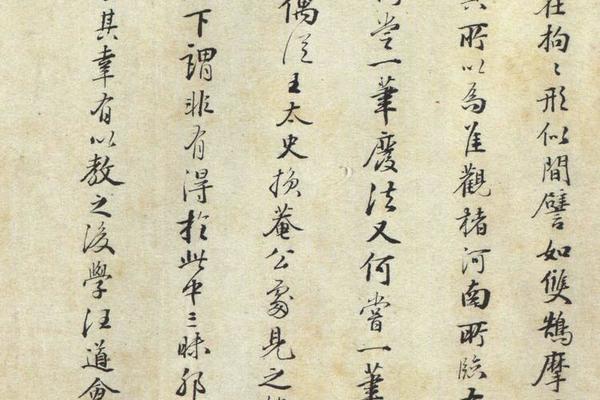 在拘〻形似間譬如雙鵠摩
所以為佳觀褚河南所臨
嘗一筆廢法又何嘗一筆
偶從王太史損菴公處見之
下謂非有得於此中三昧邪
其幸有以教之後學汪道會